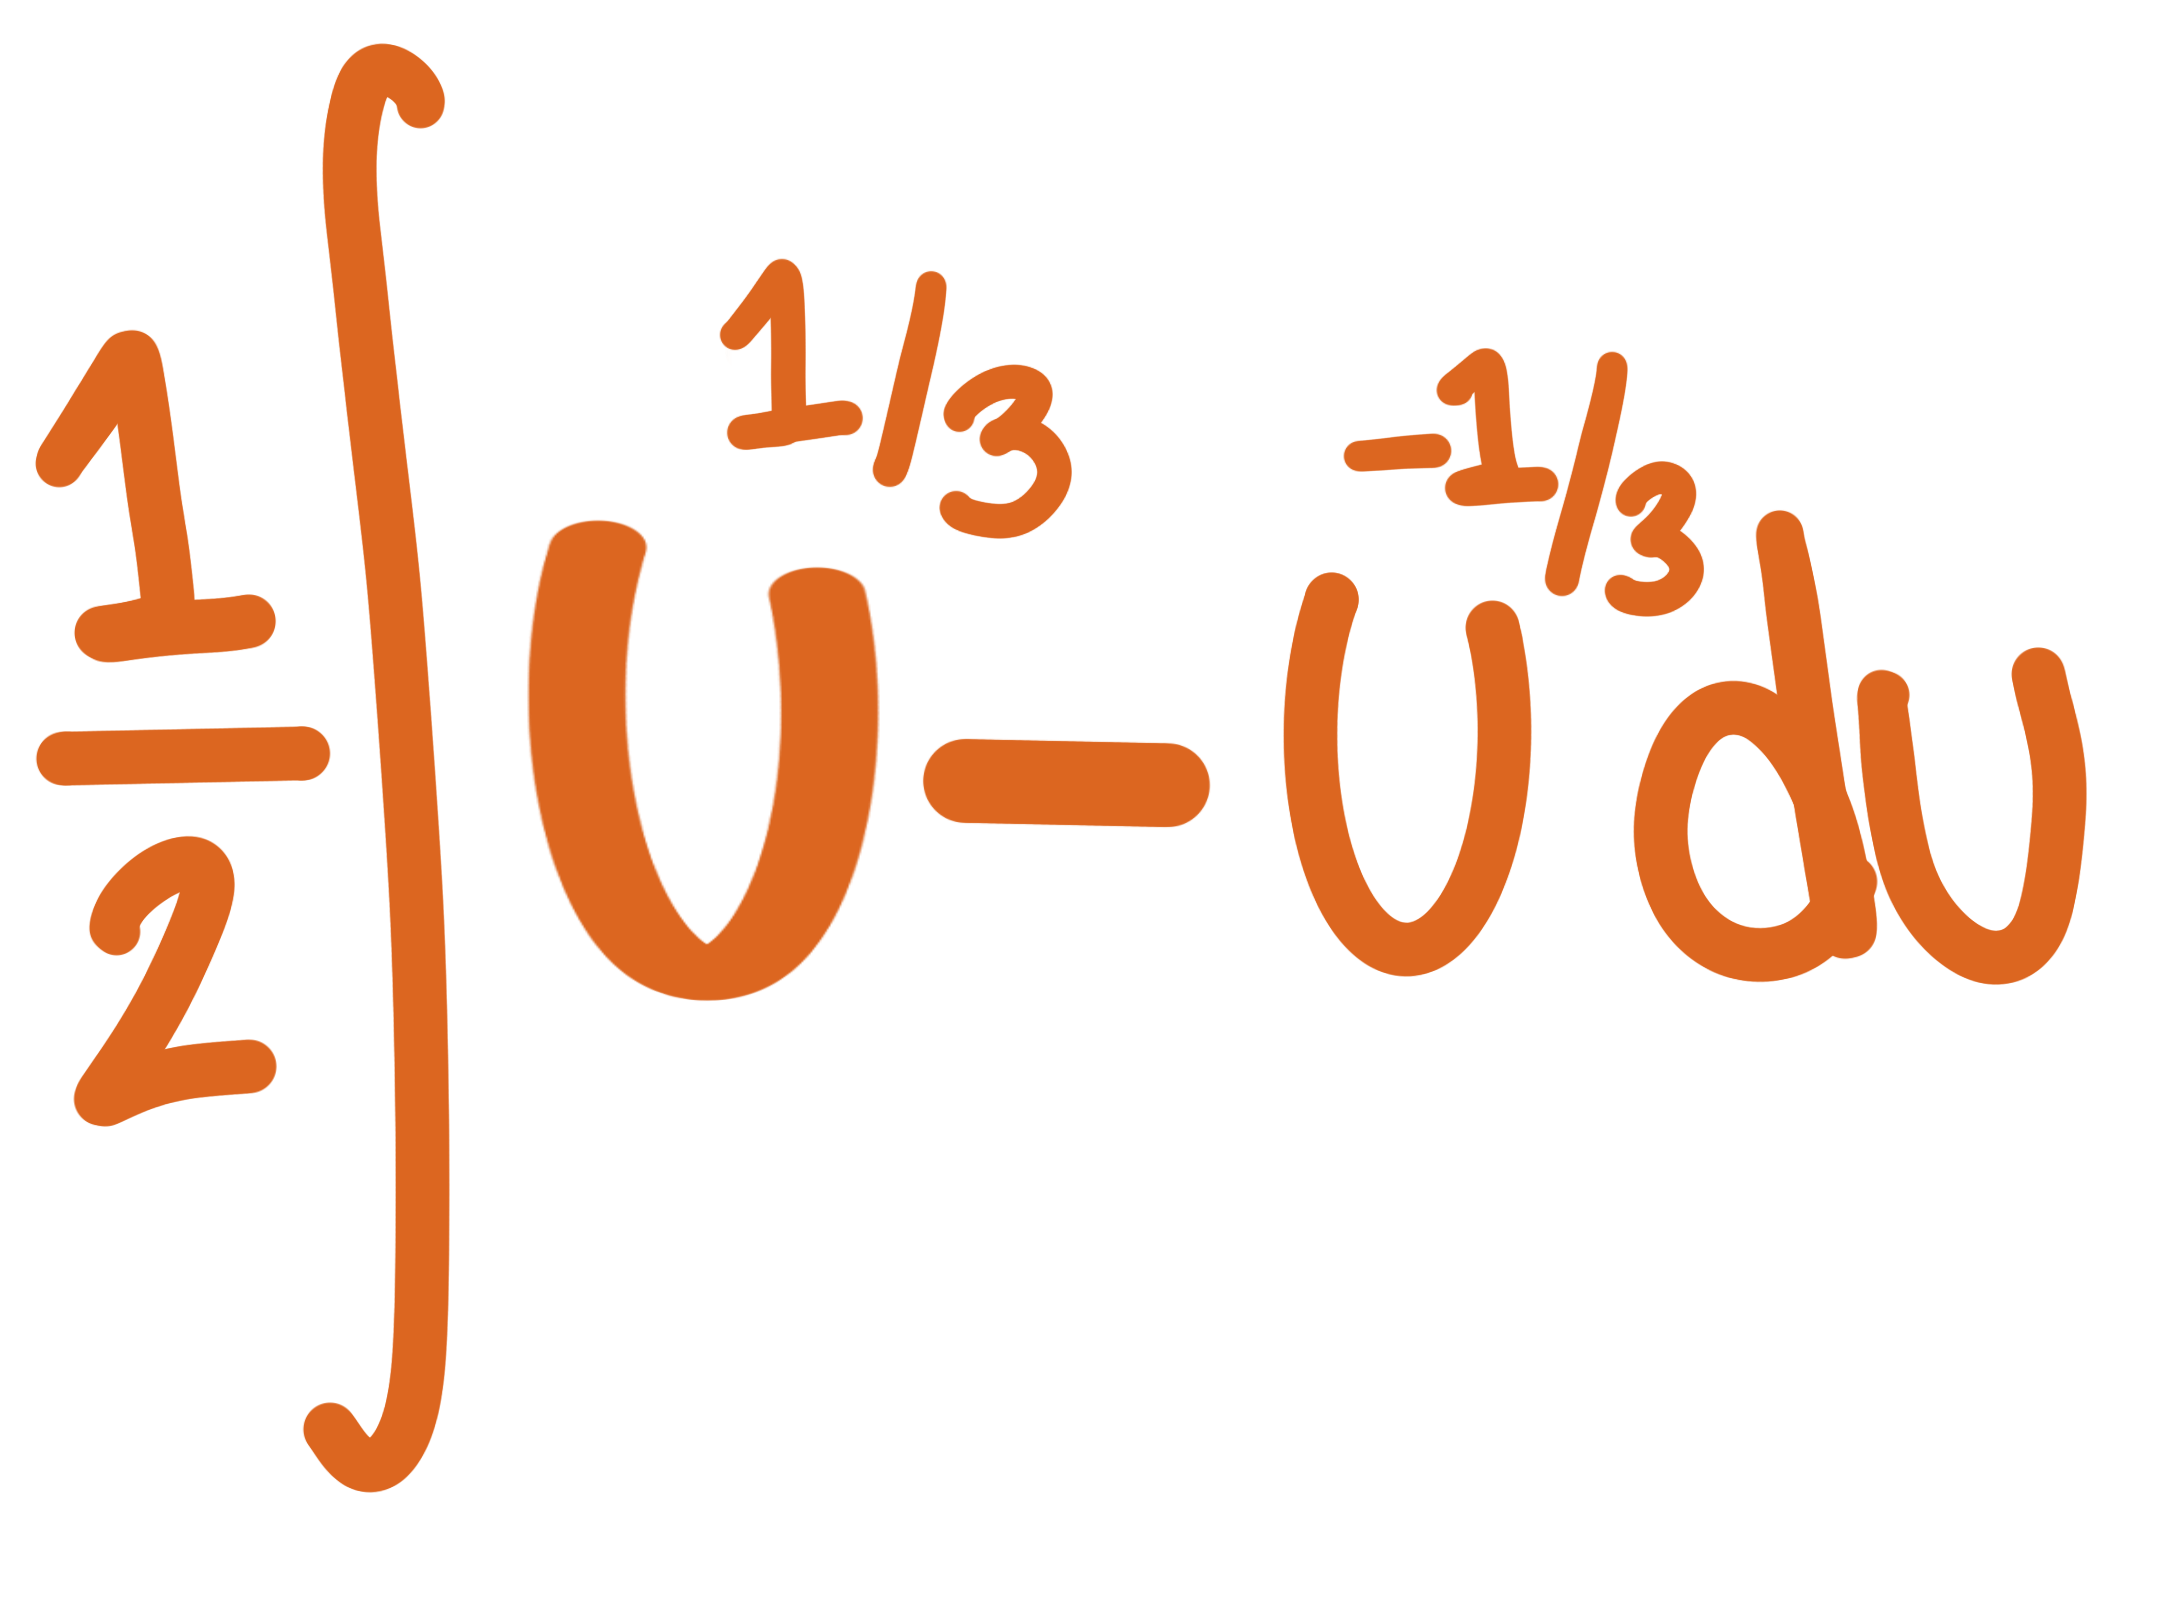 1/2 ∫ U^1/3 - U^-1/3 du